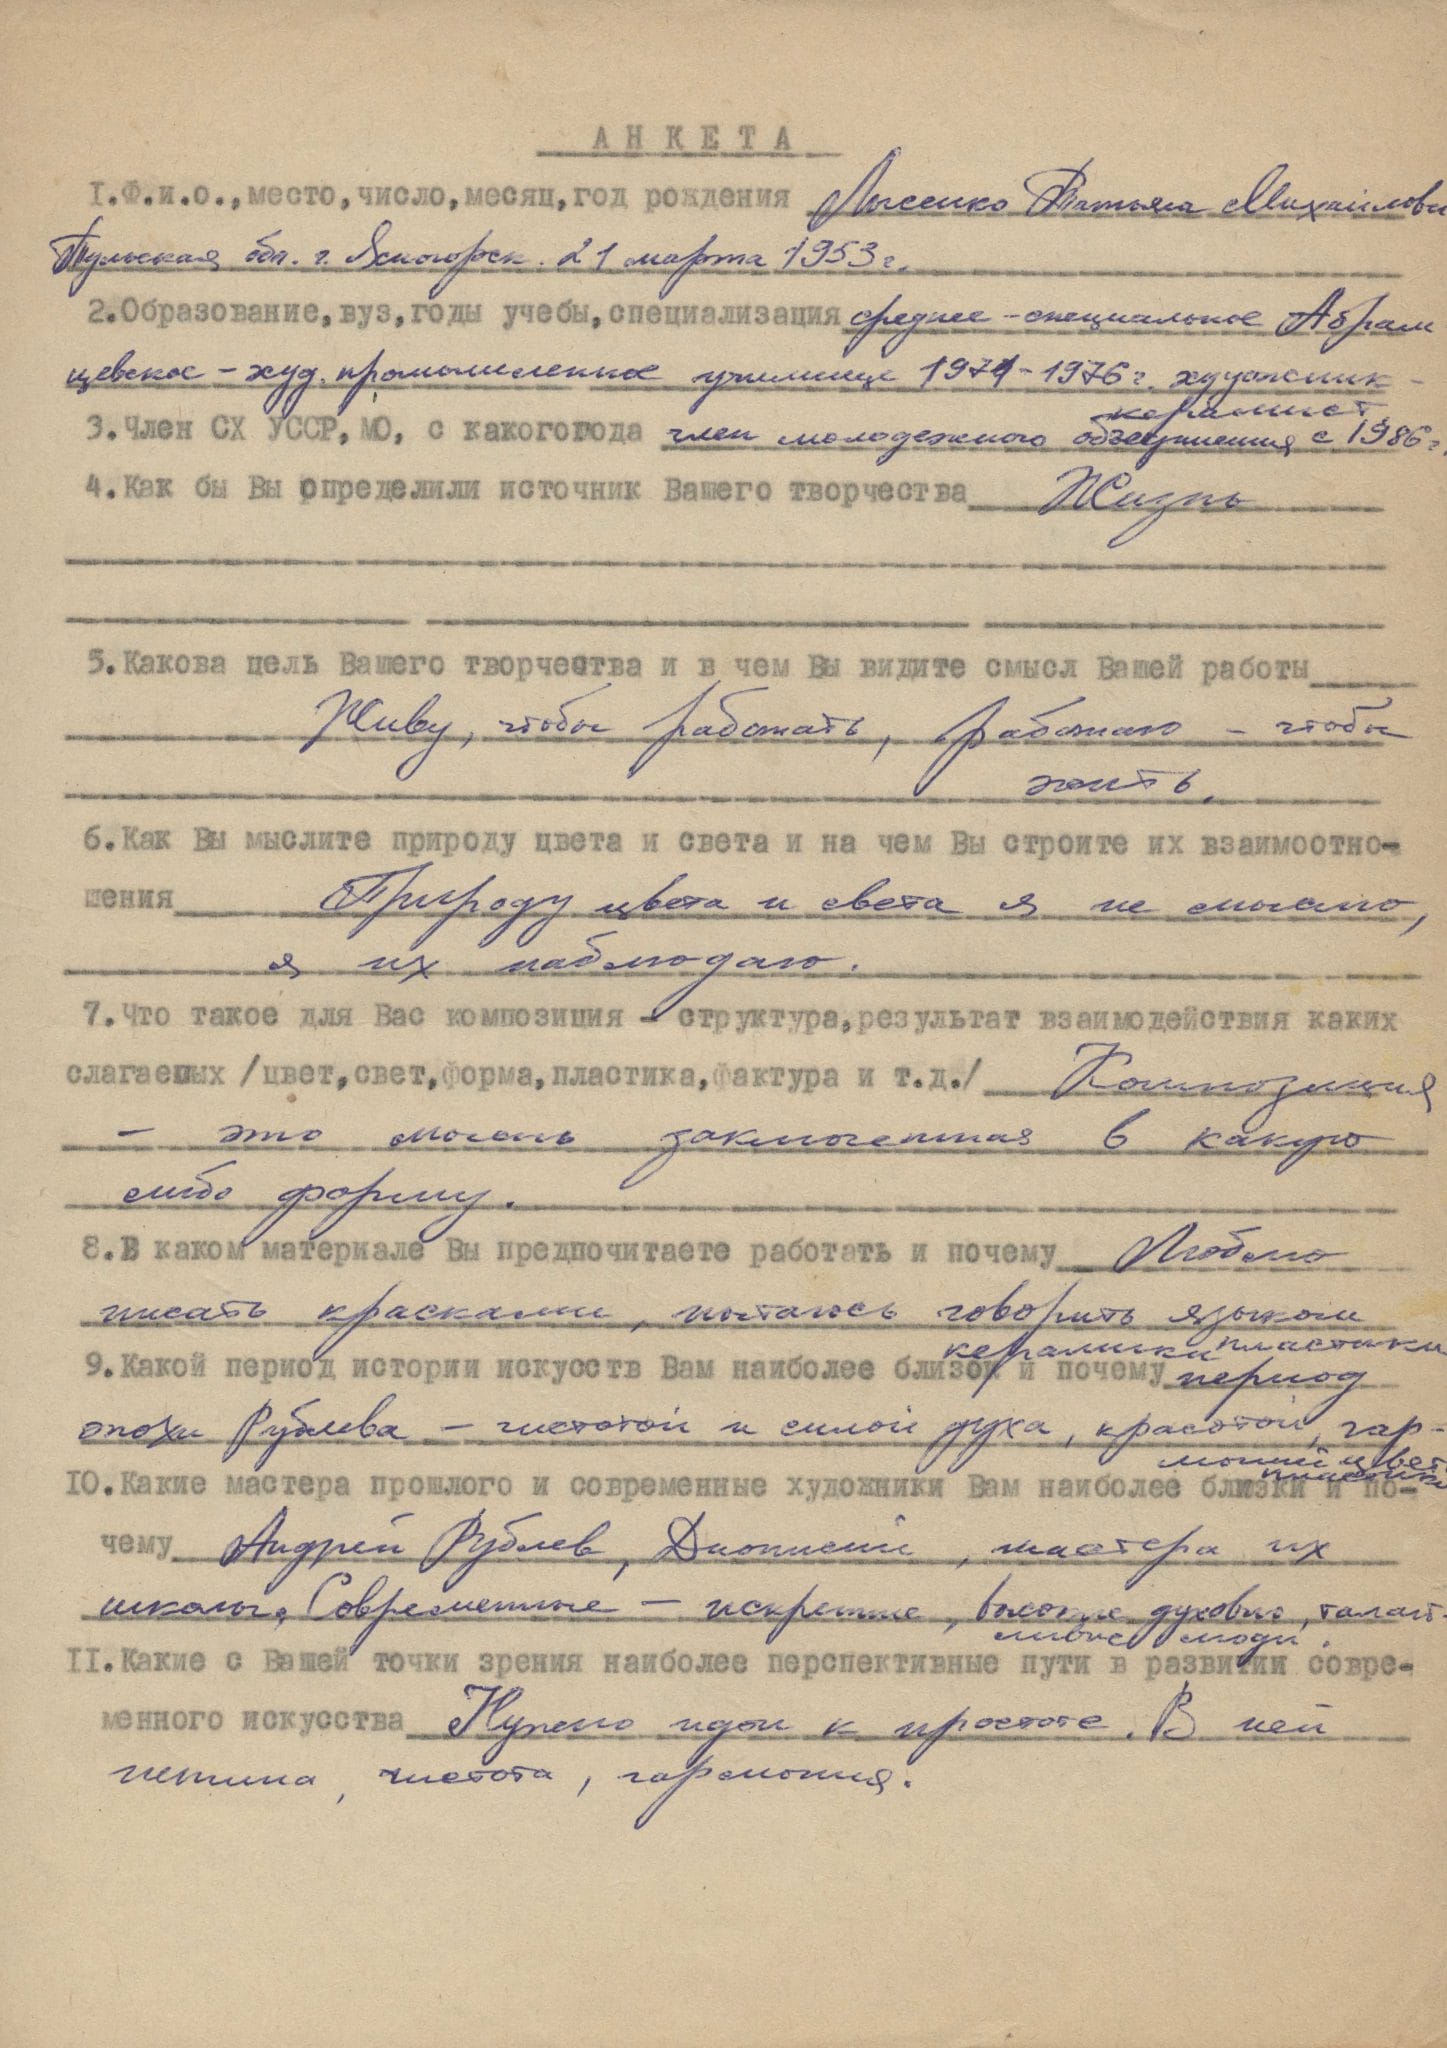 АНКЕТА
1.Ф.и.о.,место,число,месяц,год рождения Лысенко Татьяна Михайловн
Тульская обл. г. Ясногорск. 21 марта 1953 г.
2.Образование,вуз,годы учебы,специализация среднее-специальное Абрам
цевское - худ. промышленное училище 1971-1976 г. художник-
керамист
3.Член СХ УССР,МО, с какогогода член молодежного объединения с 1986 г.
4.Как бы Вы определили источник Вашего творчества Жизнь
5.Какова цель Вашего творчества и в чем Вы видите смысл Вашей работы
Живу, чтобы работать, работаю - чтобы
жить.
6.Как Вы мыслите природу цвета и света и на чем Вы строите их взаимоотно-
шения Природу цвета и света я не мыслю,
я их наблюдаю.
7.Что такое для Вас композиция - структура,результат взаимодействия каких
слагаемых /цвет,свет,форма,пластика,фактура и т.д./ Композиция
- это мысль заключенная в какую
либо форму.
8.В каком материале Вы предпочитаете работать и почему Люблю
писать красками, пытаюсь говорить языком
керамики пластики
9.Какой период истории искусств Вам наиболее близок и почему период
эпохи Рублева - чистотой и силой духа, красотой, гар-
монией цвет
пластики
10.Какие мастера прошлого и современные художники Вам наиболее близки и по-
чему Андрей Рублев, Дионисий, мастера их
школы. Современные - искренние, высокие духовно, талант-
ливые люди.
11.Какие с Вашей точки зрения наиболее перспективные пути в развитии совре-
менного искусства Нужно идти к простоте. В ней
истина, чистота, гармония.